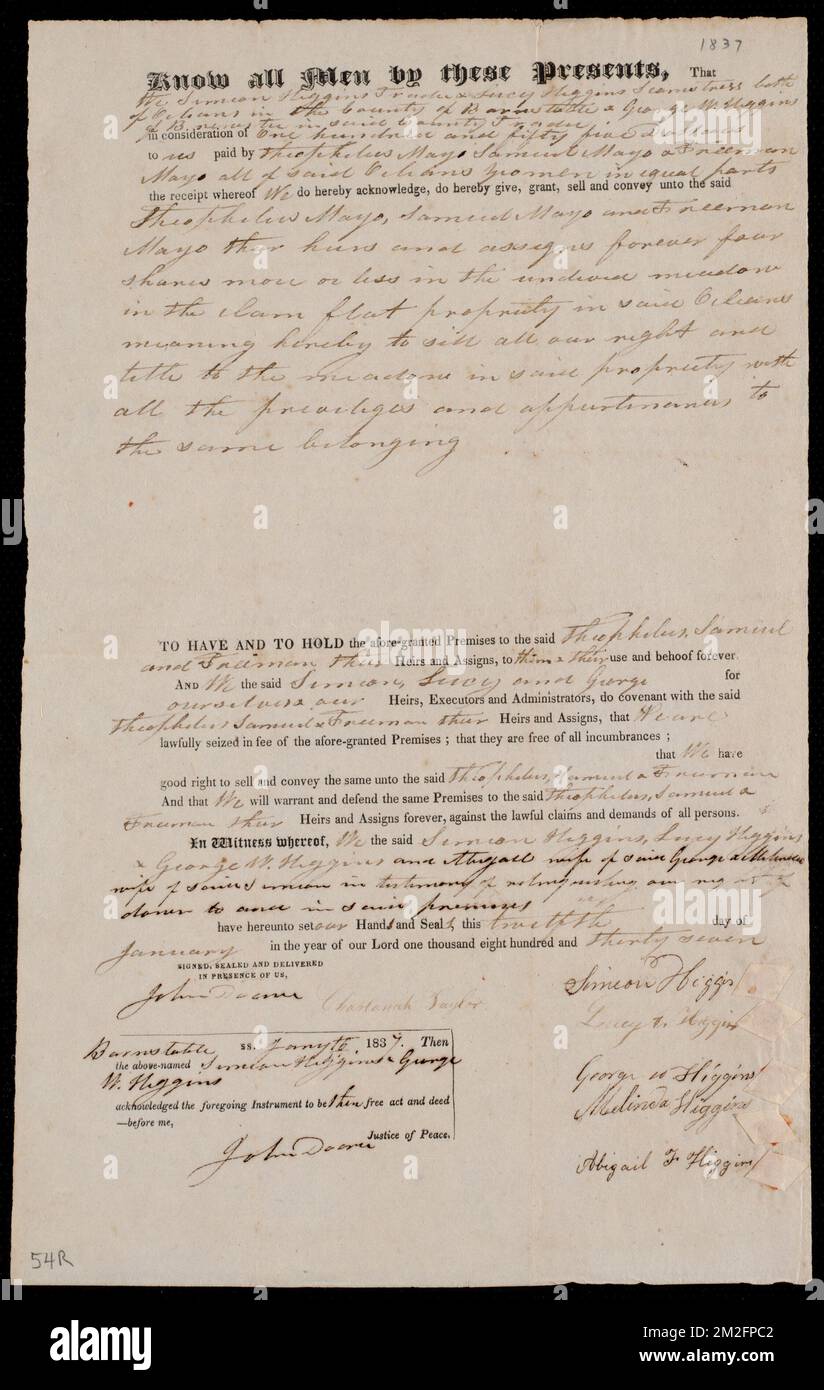 1837
Know all Men by these Presents, That
We Simeon Higgins Trader & Lucy Higgins Seamstress both
of Orleans in the County of Barnstable & George W. Higgins
of Brewster in said County Trader
in consideration of One hundred and fifty five Dollars
to us paid by Theophilus Mayo Samuel Mayo & Freeman
Mayo all of said Orleans Yeomen in equal parts
the receipt whereof We do hereby acknowledge, do hereby give, grant, sell and convey unto the said
Theophilus Mayo, Samuel Mayo and Freeman
Mayo ther heirs and assigns forever four
shares more or less in the undived meadow
in the clam flat propriety in said Orleans
meaning hereby to sell all our right and
title to the meadow in said propriety with
all the priviliges and appurtinances to
the same belonging
TO HAVE AND TO HOLD the afore-granted Premises to the said Theophilus, Samuel
and Freeman their Heirs and Assigns, to them & their use and behoof forever.
AND We the said Simeon, Lucy and George for
ourselves our Heirs, Executors and Administrators, do covenant with the said
Theophilus Samuel & Freeman their Heirs and Assigns, that We are
lawfully seized in fee of the afore-granted Premises ; that they are free of all incumbrances ;
that We have
good right to sell and convey the same unto the said Theophilus, Samuel & Freeman
And that We will warrant and defend the same Premises to the said Theophilus, Samuel &
Freeman their Heirs and Assigns forever, against the lawful claims and demands of all persons.
In Witness whereof, We the said Simeon Higgins, Lucy Higgins
& George W. Higgins and Abigail wife of said George & Melinda
wife of said Simeon in testimony of relinquishing our right of
dower to and in said premises
have hereunto set our Hands and Seals this twelfth day of
January in the year of our Lord one thousand eight hundred and thirty seven
SIGNED, SEALED AND DELIVERED
IN PRESENCE OF US,
John Doane Taylor
Simeon Higgins
Lucy Higgins
George W Higgins
Melinda Higgins
Abigail F Higgins
Barnstable ss. 1837. Then
the above-named Simeon Higgins & George
W. Higgins
acknowledged the foregoing Instrument to be their free act and deed
—before me,
John Doane Justice of Peace.
54R
alamy
a
alamy
Image ID: 2M2FPC2
www.alamy.com